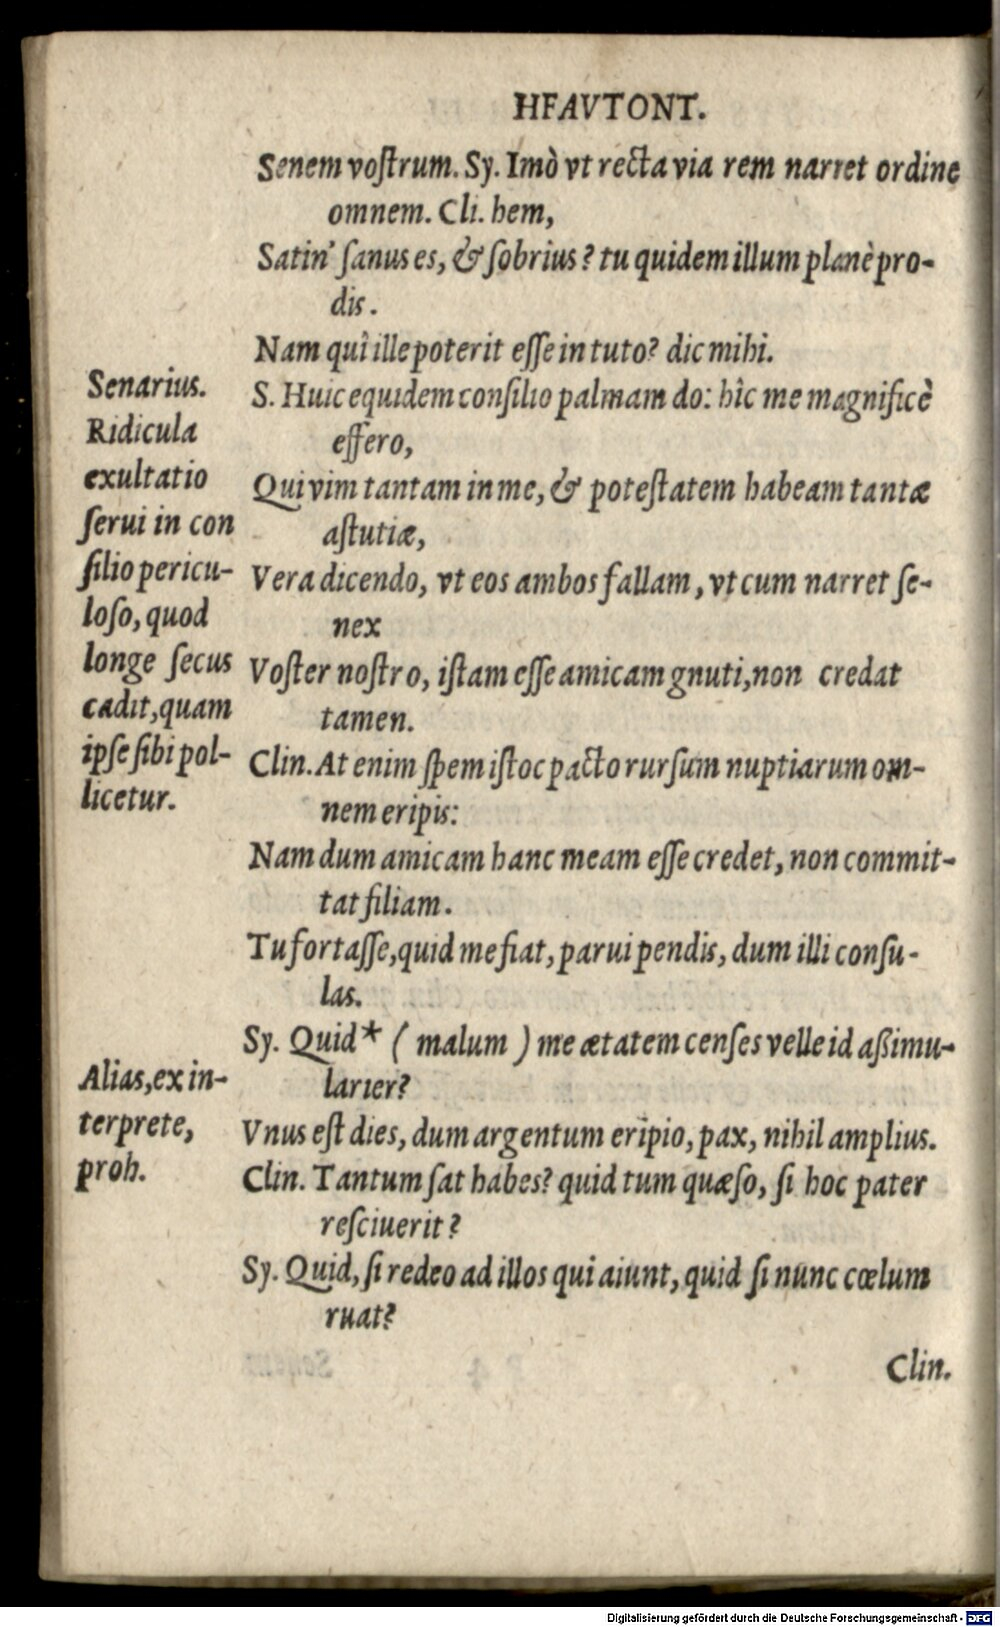 HFAVTONT.
Senem voſtrum. Sy. Imò vt recta via rem narret ordine
omnem. Cli. hem,
Satin' ſanus es, & ſobrius? tu quidem illum planè pro-
dis.
Nam quî ille poterit eſſe in tuto? dic mihi.
S. Huic equidem conſilio palmam do: hîc me magnificè
effero,
Qui vim tantam in me, & poteſtatem habeam tantæ
aſtutiæ,
Vera dicendo, vt eos ambos fallam, vt cum narret ſe-
nex
Voſter noſtro, iſtam eſſe amicam gnuti, non credat
tamen.
Clin. At enim ſpem iſtoc pacto rurſum nuptiarum om-
nem eripis:
Nam dum amicam hanc meam eſſe credet, non commit-
tat filiam.
Tu fortaſſe, quid me fiat, parui pendis, dum illi conſu-
las.
Sy. Quid* ( malum ) me ætatem cenſes velle id aßimu-
larier?
Vnus eſt dies, dum argentum eripio, pax, nihil amplius.
Clin. Tantum ſat habes? quid tum quæſo, ſi hoc pater
reſciuerit?
Sy. Quid, ſi redeo ad illos qui aiunt, quid ſi nunc cœlum
ruat?
Clin.
Senarius.
Ridicula
exultatio
ſerui in con
ſilio pericu-
loſo, quod
longe ſecus
cadit, quam
ipſe ſibi pol-
licetur.
Alias, ex in-
terprete,
proh.
Digitalisierung gefördert durch die Deutsche Forschungsgemeinschaft - DFG